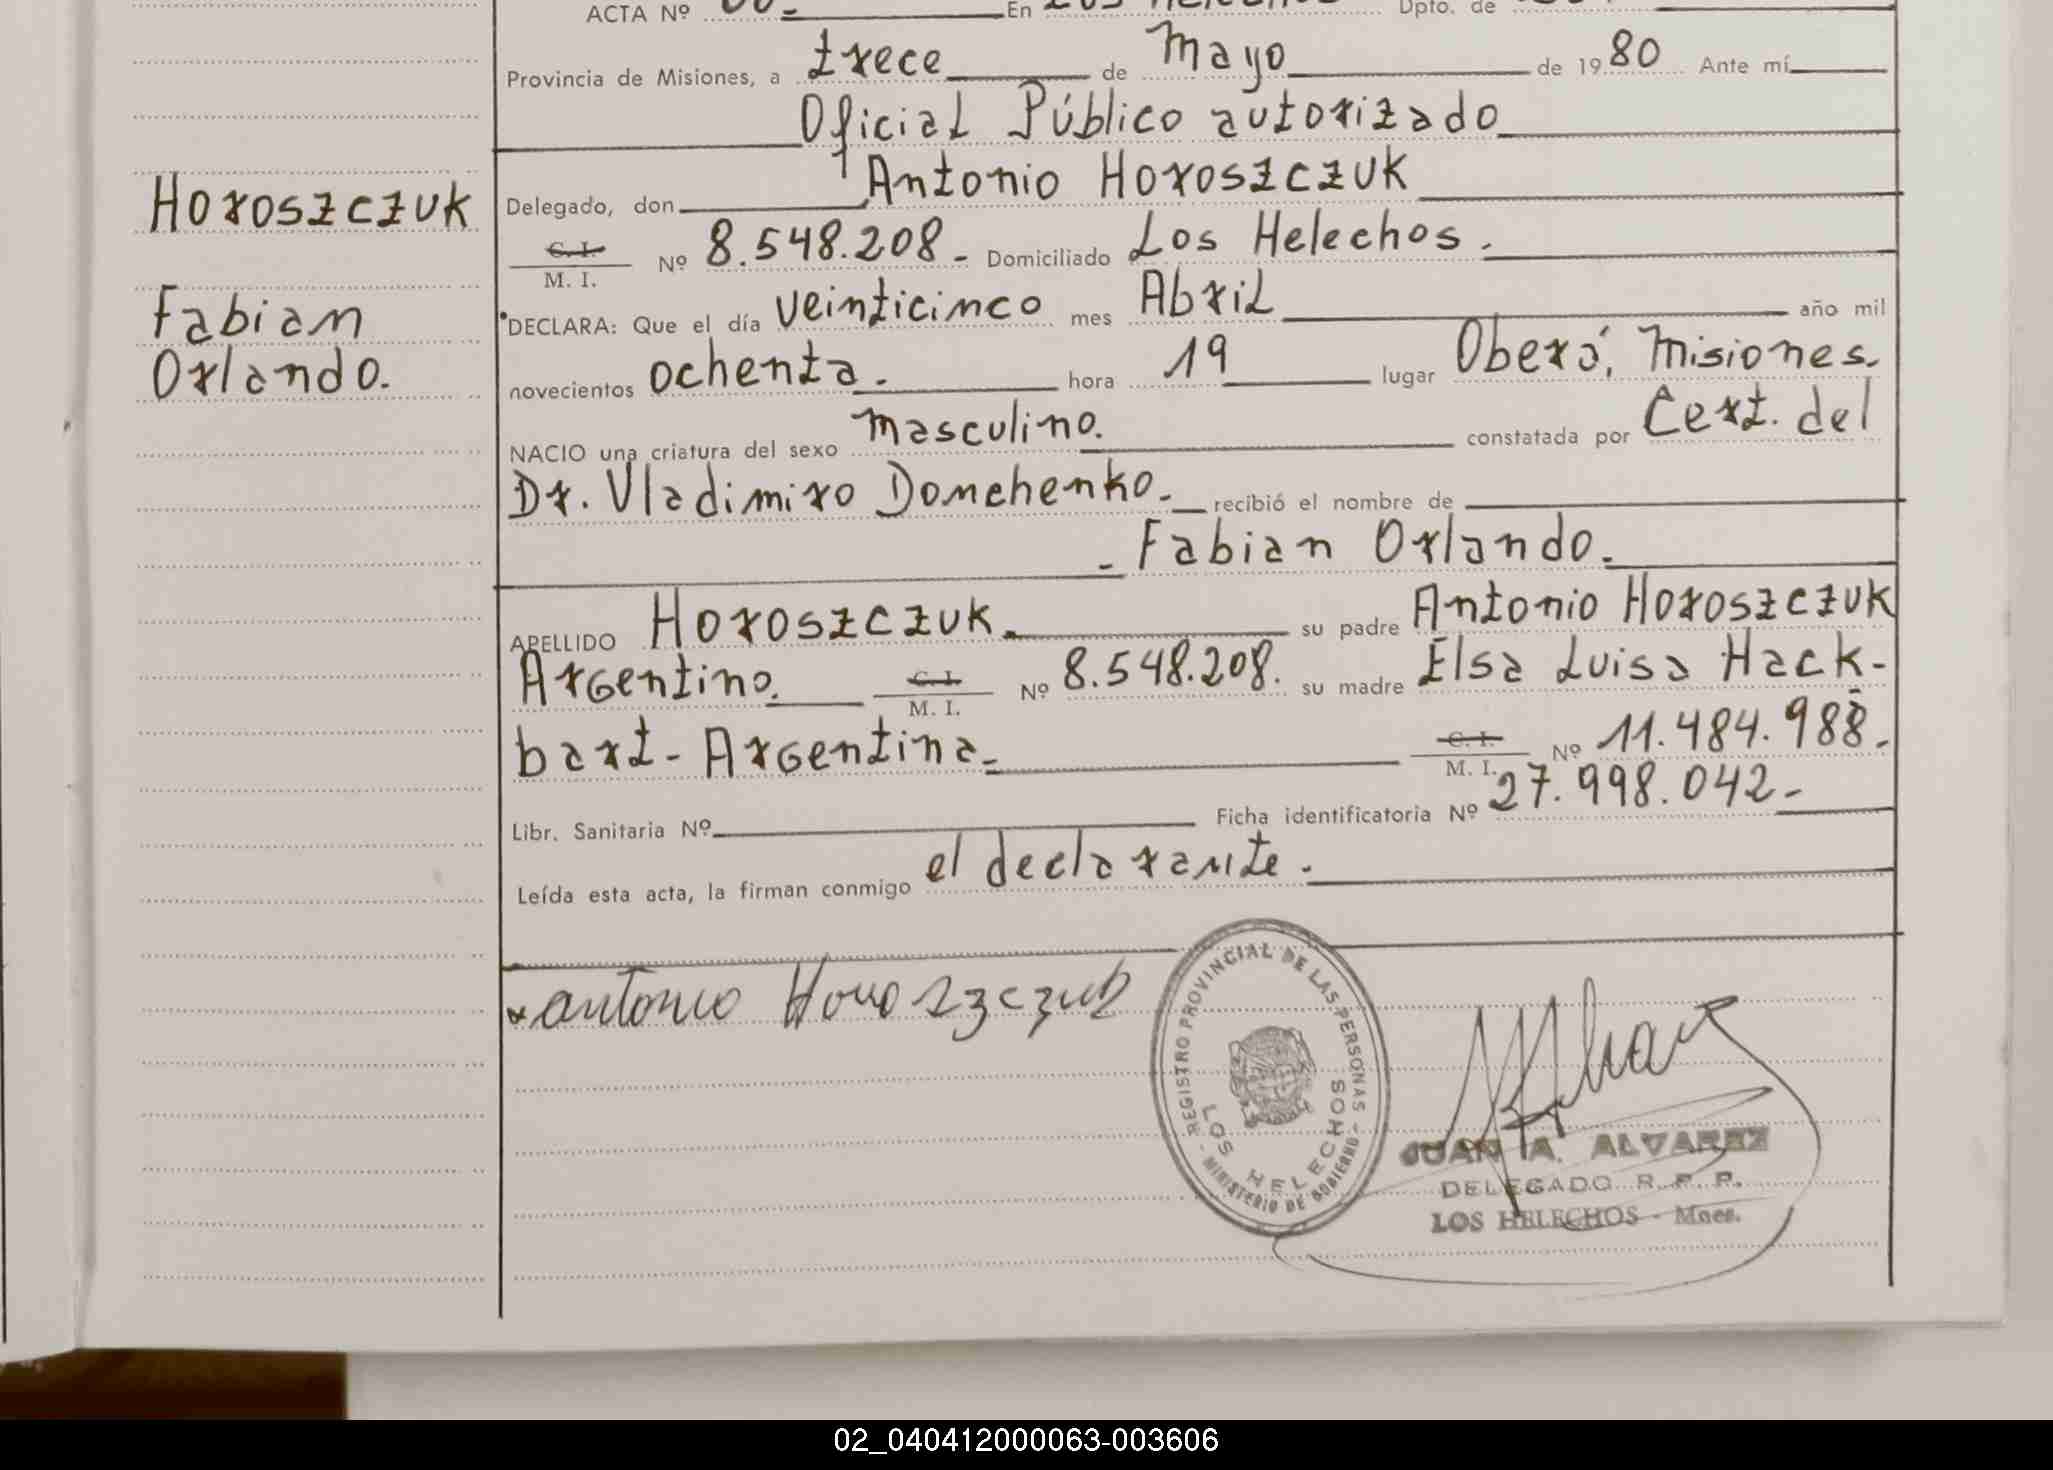 ACTA Nº En Dpto. de
Provincia de Misiones, a trece de Mayo de 1980 Ante mí
Oficial Público autorizado
Delegado, don Antonio Horoszczuk
C. I.
M. I. Nº 8.548.208- Domiciliado Los Helechos.
DECLARA: Que el día veinticinco mes Abril año mil
novecientos ochenta. hora 19 lugar Oberá, Misiones.
NACIO una criatura del sexo masculino. constatada por Cert. del
Dr. Vladimiro Domchenko.- recibió el nombre de
- Fabian Orlando.
APELLIDO Horoszczuk. su padre Antonio Horoszczuk
Argentino. C. I. M. I. Nº 8.548.208. su madre Elsa Luisa Hack-
bart- Argentina.- C. I. M. I. Nº 11.484.988.-
Libr. Sanitaria Nº Ficha identificatoria Nº 27.998.042-
Leída esta acta, la firman conmigo el declarante.
Horoszczuk
Fabian
Orlando.
Antonio Horoszczuk
REGISTRO PROVINCIAL DE LAS PERSONAS
- MINISTERIO DE GOBIERNO -
LOS HELECHOS
JUAN A. ALVAREZ
DELEGADO R. P. P.
LOS HELECHOS - Mnes.
02_040412000063-003606